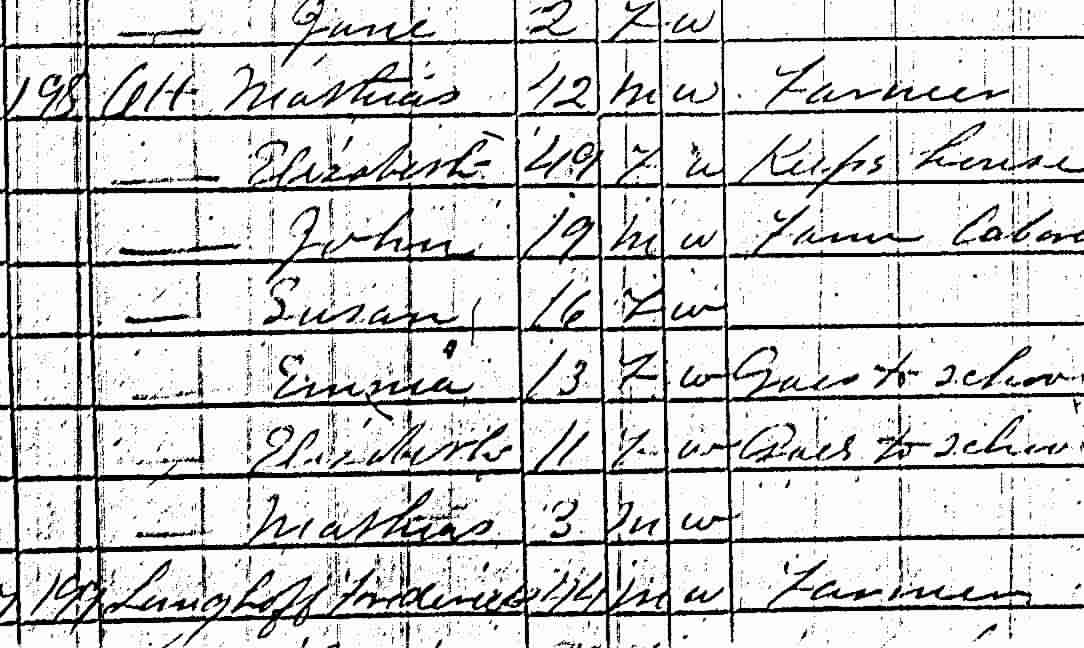 — Jane 2 F w
198 Ott Mathias 42 M w Farmer
— Elizabeth 49 F w Keeps house
— John 19 M w Farm Labore
— Susan 16 F w
— Emma 13 F w Goes to schoo
— Elizabeth 11 F w Goes to schoo
— Mathias 3 M w
199 Langhoff Frederick 44 M w Farmer